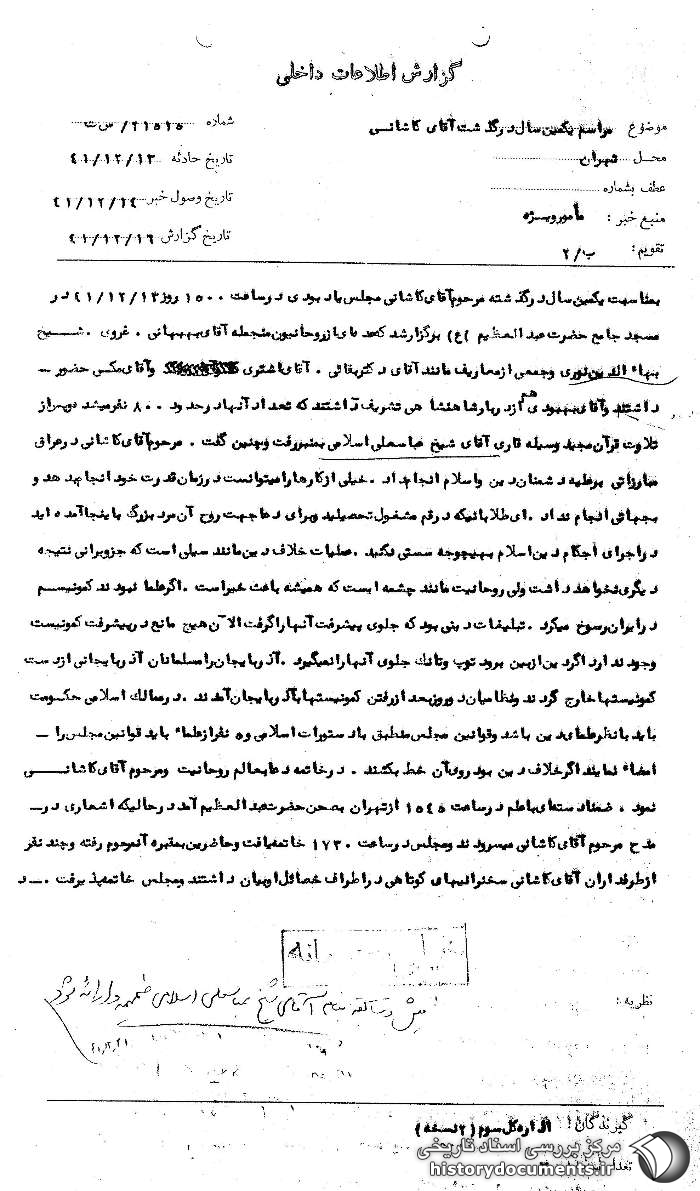 گزارش اطلاعات داخلی
موضوع مراسم یکمین سال درگذشت آقای کاشانی
شماره ۲۱۵۱۵/ س ت
محل تهران
تاریخ حادثه ۴۱/۱۲/۱۳
عطف بشماره
تاریخ وصول خبر ۴۱/۱۲/۱۴
منبع خبر : مأمور ویژه
تاریخ گزارش ۴۱/۱۲/۱۶
تقویم : ب/۲
بمناسبت یکمین سال درگذشته مرحوم آقای کاشانی مجلس یادبودی در ساعت ۱۵۰۰ روز ۴۱/۱۲/۱۳ در
مسجد جامع حضرت عبدالعظیم (ع) برگزار شد که عده‌ای از روحانیون منجمله آقای بهبهانی . غروی . شیخ
بهاءالدین نوری و جمعی از معاریف مانند آقای دکتر بقائی . آقای اشتری و آقای مکی حضور -
داشتند و آقای بهبودی هم از دربار شاهنشاهی تشریف داشتند که تعداد آنها در حدود ۸۰۰ نفر میشد و پس از
تلاوت قرآن مجید وسیله قاری آقای شیخ عباسعلی اسلامی بمنبر رفت و چنین گفت . مرحوم آقای کاشانی در عراق
مبارزاتی برعلیه دشمنان دین و اسلام انجام داد . خیلی از کارها را میتوانست در زمان قدرت خود انجام بدهد و
بجهاتی انجام نداد . ای طلابانیکه در قم مشغول تحصیلید و برای دعا جهت روح آن مرد بزرگ باینجا آمده اید
در اجرای احکام دین اسلام بهیچوجه سستی نکنید . عملیات خلاف دین مانند سیلی است که جز ویرانی نتیجه
دیگری نخواهد داشت ولی روحانیت مانند چشمه ایست که همیشه باعث خیر است . اگر علما نبودند کمونیسم
در ایران رسوخ میکرد . تبلیغات دینی بود که جلوی پیشرفت آنها را گرفت الآن هیچ مانع در پیشرفت کمونیست
وجود ندارد اگر دین از بین برود توپ و تانک جلوی آنها را نمیگیرد . آذربایجان را مسلمانان آذربایجانی از دست
کمونیستها خارج کردند و نظامیان دو روز بعد از رفتن کمونیستها بآذربایجان آمدند . در ممالک اسلامی حکومت
باید با نظر علمای دین باشد و قوانین مجلس منطبق با دستورات اسلامی و ۵ نفر از علماء باید قوانین مجلس را -
امضاء نمایند اگر خلاف دین بود روی آن خط بکشند . در خاتمه دعا بعالم روحانیت و مرحوم آقای کاشانی
نمود ، ضمنا دسته‌ای با علم در ساعت ۱۵۴۵ از تهران بصحن حضرت عبدالعظیم آمد در حالیکه اشعاری در -
مدح مرحوم آقای کاشانی میسرودند و مجلس در ساعت ۱۷۳۰ خاتمه یافت و حاضرین بمقبره آنمرحوم رفته و چند نفر
از طرفداران آقای کاشانی سخنرانیهای کوتاهی در اطراف خصائل او بیان داشتند و مجلس خاتمه پذیرفت . - د
نظریه :
آقای شیخ عباسعلی اسلامی ضمیمه و ارائه شود
۴۱/۱۲/۲۱
گیرندگان : اداره کل سوم (۲ نسخه)
مرکز بررسی اسناد تاریخی
historydocuments.ir